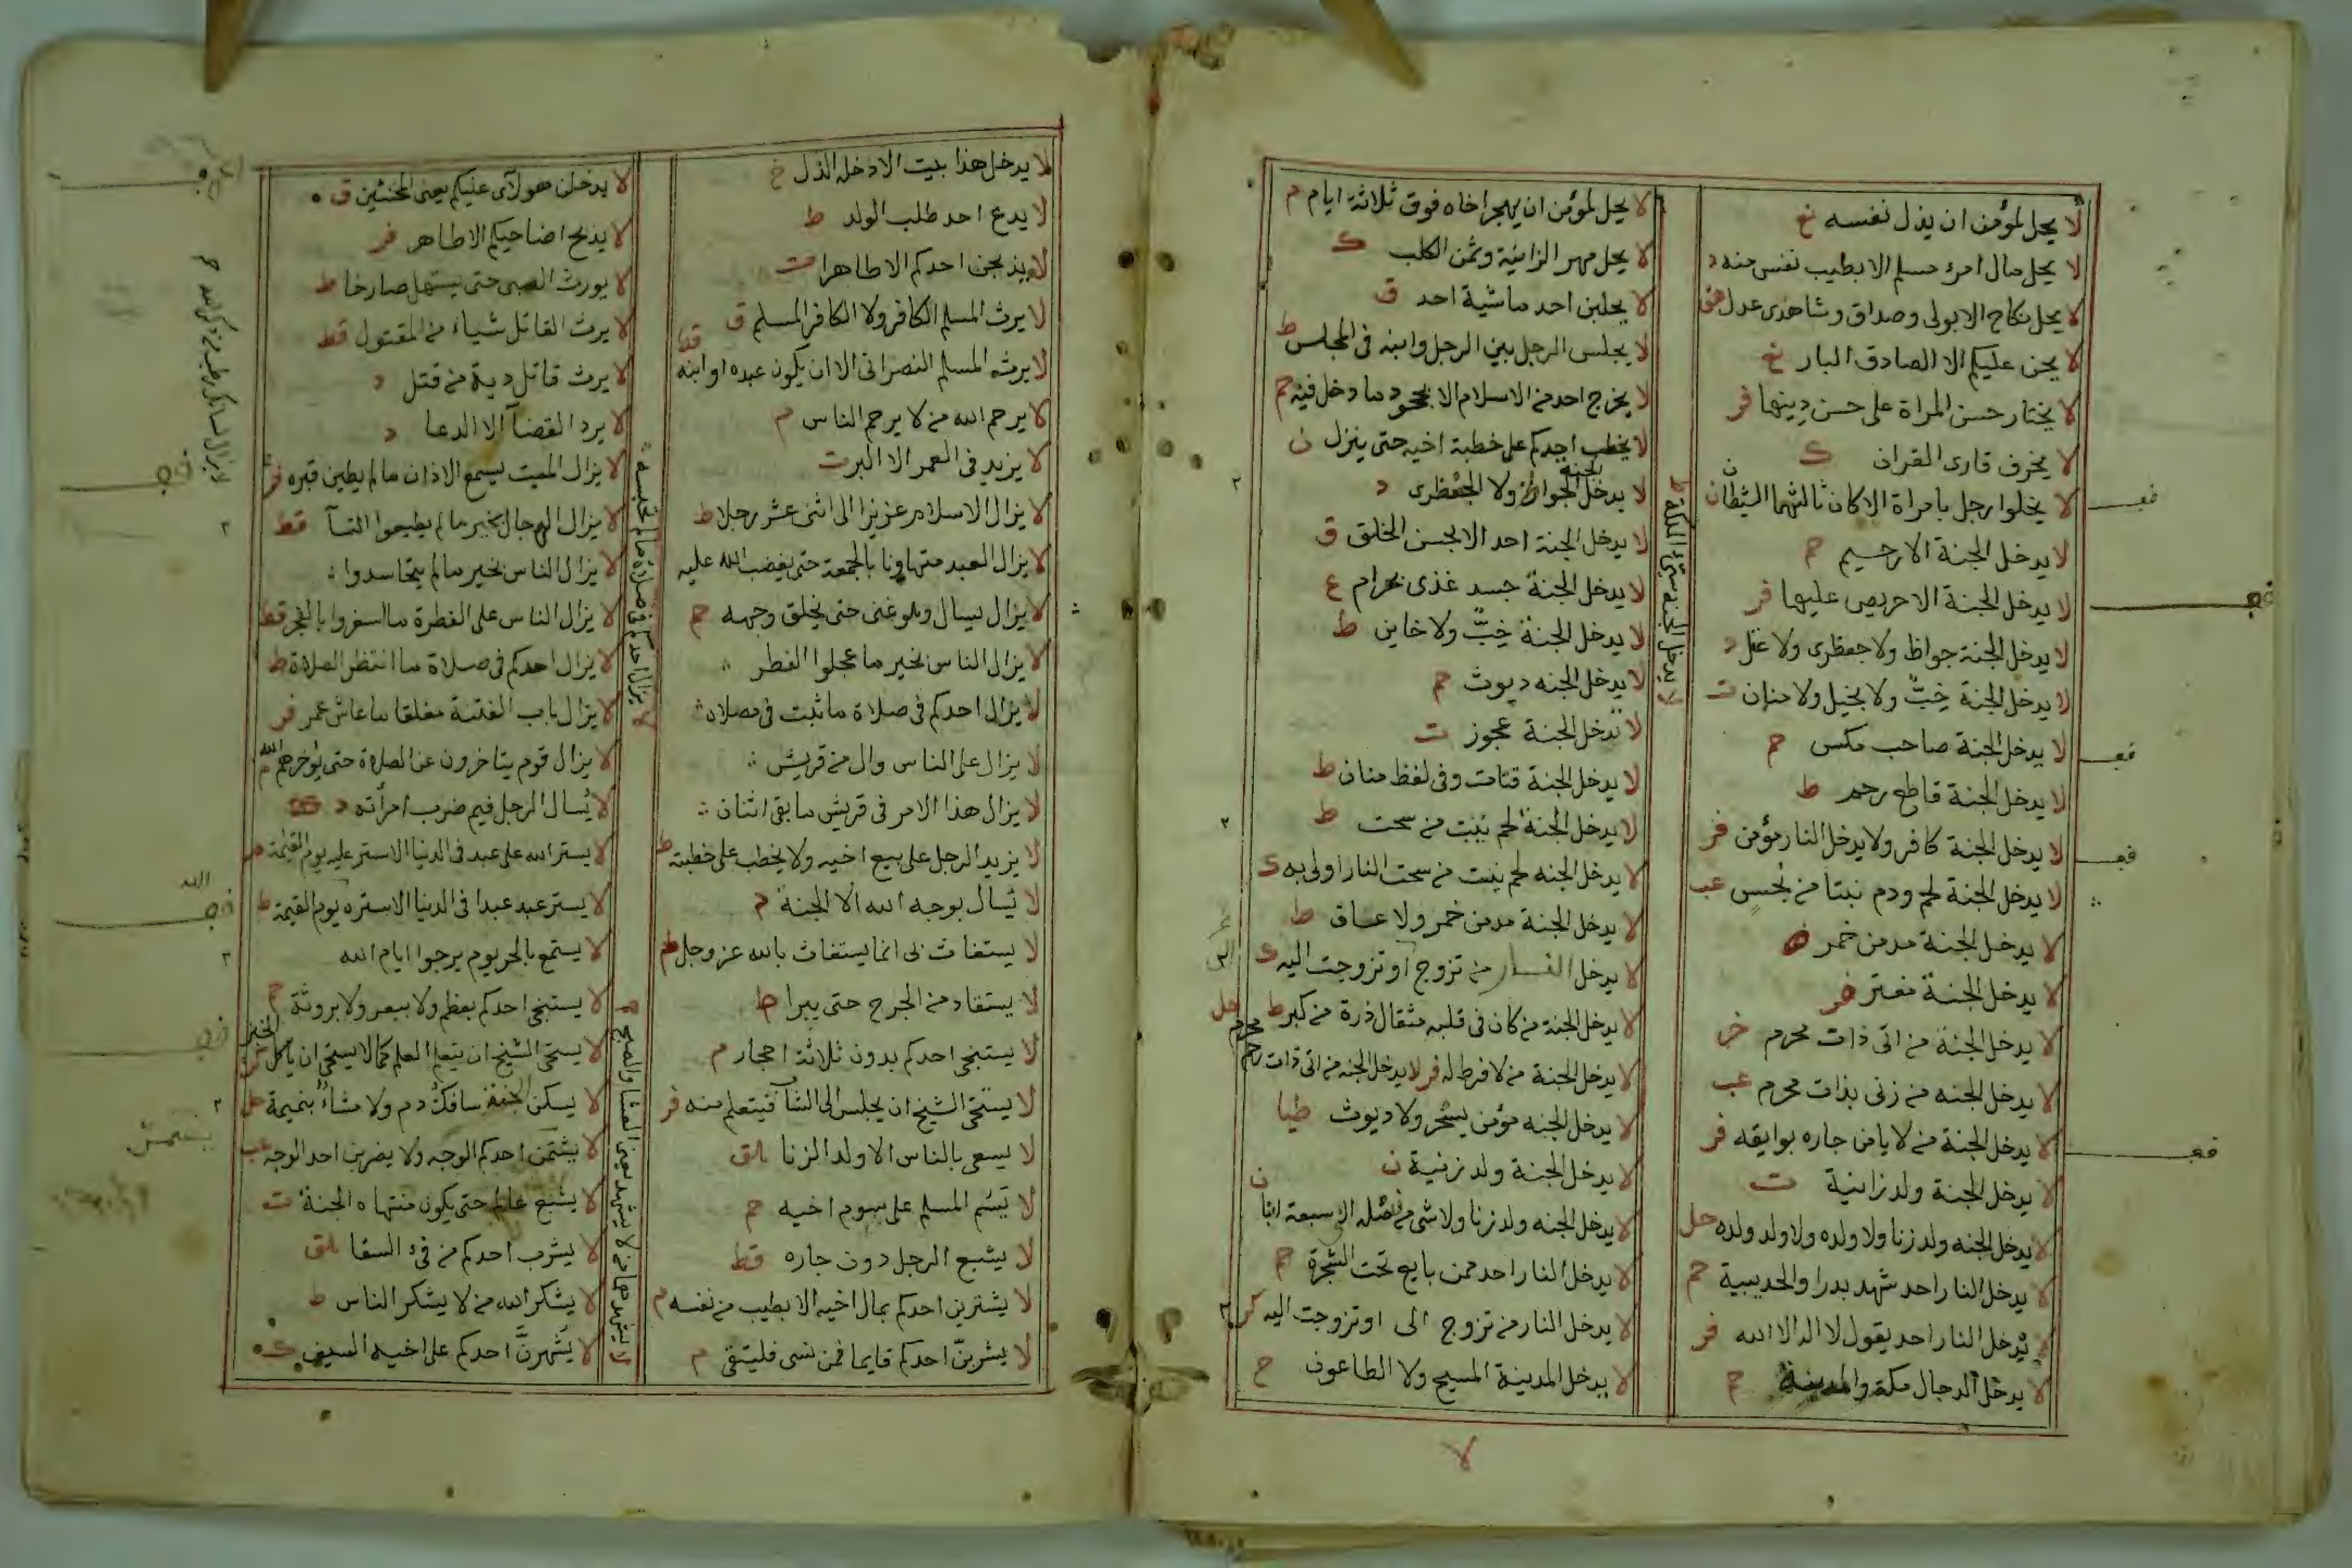 لا يحل لمؤمن ان يذل نفسه خ
لا يحل مال امرء مسلم الا بطيب نفس منه د
لا يحل نكاح الا بولى وصداق وشاهدى عدل هق
لا يحنى عليكم الا الصادق البار خ
لا يختار حسن المراة على حسن دينها فر
لا يخرف قارى القران ك
لا يخلوا رجل بامراة الا كان ثالثهما الشيطان ن
لا يدخل الجنة الا رحيم حم
لا يدخل الجنة الا حريص عليها فر
لا يدخل الجنة جواظ ولا جعظرى ولا غل د
لا يدخل الجنة خِبٌّ ولا بخيل ولا منان ت
لا يدخل الجنة صاحب مكس حم
لا يدخل الجنة قاطع رحم ط
لا يدخل الجنة كافر ولا يدخل النار مؤمن فر
لا يدخل الجنة لحم ودم نبتا من نجس عب
لا يدخل الجنة مدمن خمر ه
لا يدخل الجنة مفتر فر
لا يدخل الجنة من اتى ذات محرم خر
لا يدخل الجنه من زنى بذات محرم عب
لا يدخل الجنة من لا يامن جاره بوايقه فر
لا يدخل الجنة ولد زانية ت
لا يدخل الجنه ولد زنا ولا ولده ولا ولد ولده حل
لا يدخل النار احد شهد بدرا والحديبية حم
لا يدخل النار احد يقول لا اله الا الله فر
لا يدخل الدجال مكة والمدينة ح
لا يدخل الجنه سيئ الملكة ط
لا يحل لمؤمن ان يهجر اخاه فوق ثلاثة ايام م
لا يحل مهر الزانية وثمن الكلب ك
لا يحلبن احد ماشية احد ق
لا يجلس الرجل بين الرجل وابنه فى المجلس ط
لا يخرج احد من الاسلام الا بجحود ما دخل فيه حم
لا يخطب احدكم على خطبة اخيه حتى ينزل ن
لا يدخل الجنه الجواظ ولا الجعظرى د
لا يدخل الجنة احد الا بحسن الخلق ق
لا يدخل الجنة جسد غذى بحرام ع
لا يدخل الجنة خِبٌّ ولا خاين ط
لا يدخل الجنه ديوث حم
لا تدخل الجنة عجوز ت
لا يدخل الجنة قتات وفى لفظ منان ط
لا يدخل الجنة لحم ينبت من سحت ط
لا يدخل الجنه لحم ينبت من سحت النار اولى به ك
لا يدخل الجنة مدمن خمر ولا عاق ط
لا يدخل النار من تزوج او تزوجت اليه ك
لا يدخل الجنة من كان فى قلبه مثقال ذرة من كبر ط
لا يدخل الجنة من لا فرط له فر لا يدخل الجنه من اتى ذات رحم محرم حل
لا يدخل الجنه مؤمن بسحر ولا ديوث طيا
لا يدخل الجنة ولد زنية ن
لا يدخل الجنه ولد زنا ولا شى من نسله الى سبعة ابا ن
لا يدخل النار احد ممن بايع تحت الشجرة حم
لا يدخل النار من تزوج الى او تزوجت اليه كر
لا يدخل المدينة المسيح ولا الطاعون ح
لا
لا يدخل هذا بيت الا دخله الذل خ
لا يدع احد طلب الولد ط
لا يذبحن احدكم الا طاهرا ت
لا يرث المسلم الكافر ولا الكافر المسلم ق
لا يرث المسلم النصرانى الا ان يكون عبده او ابنه قط
لا يرحم الله من لا يرحم الناس م
لا يزيد فى العمر الا البر ت
لا يزال الاسلام عزيزا الى اثنى عشر رجلا ط
لا يزال العبد متهاونا بالجمعة حتى يغضب الله عليه
لا يزال يسال وهو غنى حتى يخلق وجهه حم
لا يزال الناس بخير ما عجلوا الفطر
لا يزال احدكم فى صلاة ما ثبت فى مصلاه
لا يزال على الناس وال من قريش
لا يزال هذا الامر فى قريش ما بقى اثنان
لا يزيد الرجل على بيع اخيه ولا يخطب على خطبته ط
لا يسال بوجه الله الا الجنة م
لا يستغاث بى انما يستغاث بالله عز وجل ط
لا يستقاد من الجرح حتى يبرا ط
لا يستنجى احدكم بدون ثلاثة احجار م
لا يستحى الشيخ ان يجلس الى الشآ فيتعلم منه فر
لا يسعى بالناس الا ولد الزنا لق
لا يَسُم المسلم على سوم اخيه حم
لا يشبع الرجل دون جاره قط
لا يشترين احدكم بمال اخيه الا بطيب من نفسه م
لا يشربنّ احدكم قايما فمن نسى فليتقى م
لا يزال احدكم فى صلاة ما لم تحبسه
لا يدخلن هولآى عليكم يعنى المخنثين ق
لا يذبح اضاحيكم الا طاهر فر
لا يورث الصبى حتى يستهل صارخا ط
لا يرث القاتل شياء من المقتول قط
لا يرث قاتل دية من قتل د
لا يرد القضآ الا الدعا د
لا يزال الميت يسمع الاذان ما لم يطين قبره فر
لا يزال الرجال بخير ما لم يطيعوا النسآ قط
لا يزال الناس بخير ما لم يتحاسدوا
لا يزال الناس على الفطرة ما اسفروا بالفجر قط
لا يزال احدكم فى صلاة ما انتظر الصلاة ط
لا يزال باب الفتنة مغلقا ما عاش عمر فر
لا يزال قوم يتاخرون عن الصلاة حتى يؤخرهم الله م
لا يُسال الرجل فيم ضرب امرأته د
لا يستر الله على عبد فى الدنيا الا ستر عليه يوم القيمة م
لا يستر عبد عبدا فى الدنيا الا ستره يوم القيمة ط
لا يستمع بالحر يوم يرجوا ايام الله
لا يستنجى احدكم بعظم ولا ببعر ولا بروثة ح
لا يستحى الشيخ ان يتعلم العلم كما لا يستحى ان ياكل الخبز
لا يسكن الجنة سافك دم ولا مشاء بنميمة حل
لا يشتمن احدكم الوجه ولا يضربن احد الوجه عب
لا يشبع عالم حتى يكون منتهاه الجنة ت
لا يشرب احدكم من فىء السقا لق
لا يشكر الله من لا يشكر الناس ط
لا يُشهرنَّ احدكم على اخيه السيف ك
لا يزال لسانك رطب من ذكر الله حم